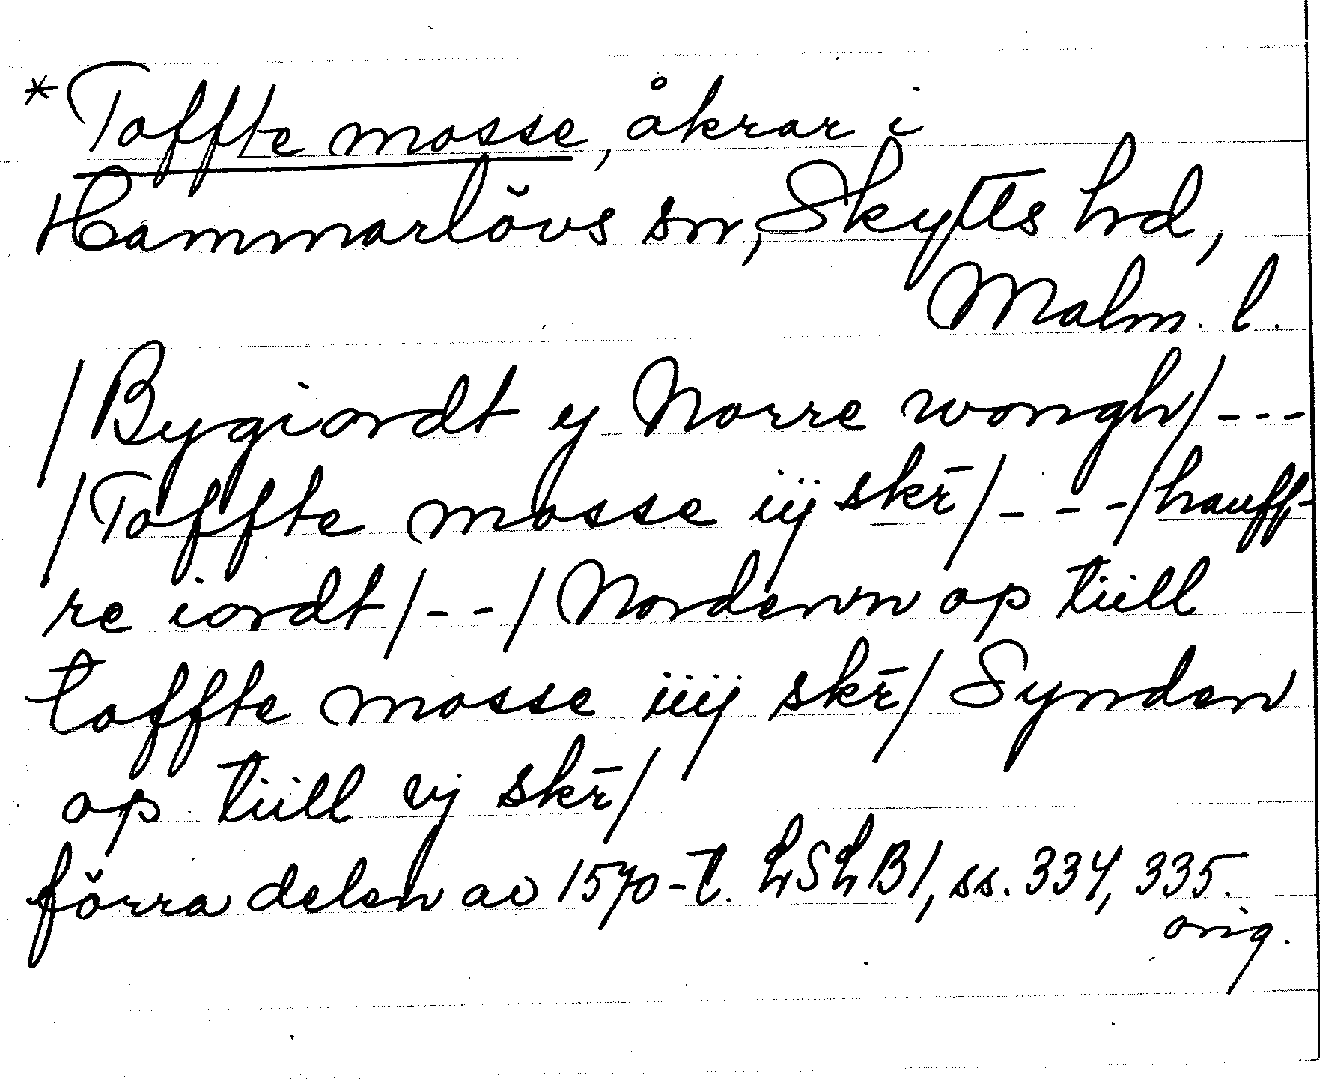 *Toffte mosse, åkrar i
Hammarlövs sn, Skytts hd,
Malm. l.
/Bygiordt y Norre wongh/---
/Toffte mosse iij skr̄/---/hauff-
re iordt/--/Nordenn op tiill
toffte mosse iiij skr̄/ Synden
op tiill vj skr̄/
förra delen av 1570-t. LSLB1, ss. 334, 335.
orig.